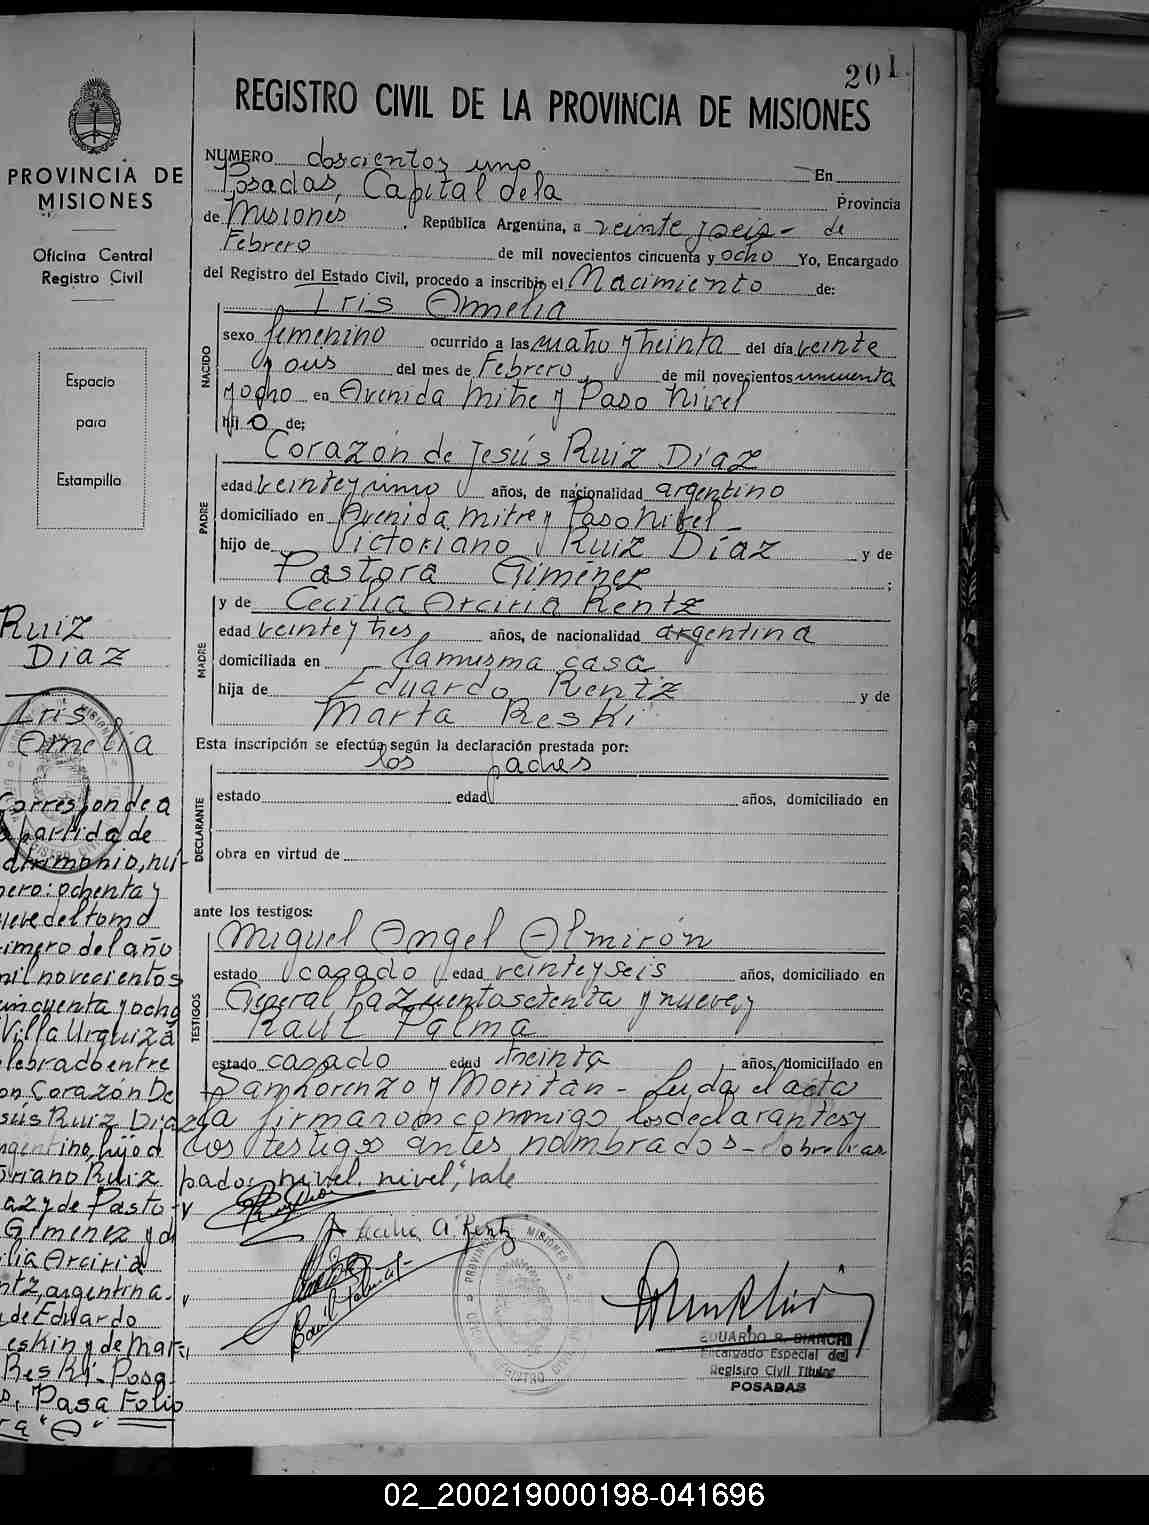 201
REGISTRO CIVIL DE LA PROVINCIA DE MISIONES
NUMERO doscientos uno En
Posadas, Capital dela Provincia
de Misiones, República Argentina, a veinte y seis - de
Febrero de mil novecientos cincuenta y ocho Yo, Encargado
del Registro del Estado Civil, procedo a inscribir el Nacimiento de:
NACIDO
Iris Amelia
sexo femenino ocurrido a las cuatro y treinta del día veinte
y dos del mes de Febrero de mil novecientos cincuenta
y ocho en Avenida Mitre y Paso Nivel
hijo de:
PADRE
Corazón de Jesús Ruiz Díaz
edad veinte y uno años, de nacionalidad argentino
domiciliado en Avenida Mitre y Paso Nivel -
hijo de Victoriano Ruiz Díaz y de
Pastora Giménez ;
MADRE
y de Cecilia Arciria Rentz
edad veinte y tres años, de nacionalidad argentina
domiciliada en la misma casa
hija de Eduardo Rentz y de
Marta Reski
Esta inscripción se efectúa según la declaración prestada por:
los padres
DECLARANTE
estado edad años, domiciliado en
obra en virtud de
ante los testigos:
TESTIGOS
Miguel Angel Almirón
estado casado edad veinte y seis años, domiciliado en
General Paz setenta y nueve y
Raúl Palma
estado casado edad treinta años, domiciliado en
San Lorenzo y Moritán - Leída el acta
la firmaron conmigo los declarantes y
los testigos antes nombrados - Sobre ras
pado: nivel. nivel; vale
Cecilia A. Rentz
Raúl Palma
EDUARDO R. BIANCHI
Encargado Especial del
Registro Civil Titular
POSADAS
PROVINCIA DE
MISIONES
Oficina Central
Registro Civil
Espacio
para
Estampilla
Ruiz
Díaz
Iris
Amelia
Corresponde a
partida de
atrimonio, nú-
mero: ochenta y
ueve del tomo
rimero del año
mil novecientos
cincuenta y ocho
Villa Urquiza
lebrado entre
on Corazón De
sús Ruiz Díaz
argentino, hijo d
oriano Ruiz
az y de Pasto-
Gimenez y d
ilia Arciria
ntz, argentina.
de Eduardo
eskin y de Mar-
Reski - Posa
s, Pasa Folio
ra "A"
02_200219000198-041696